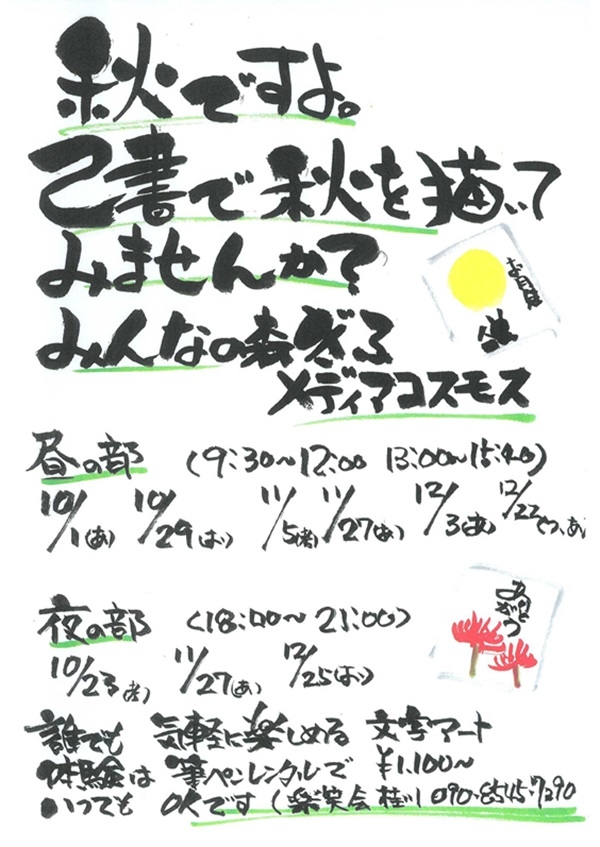 秋ですよ。
己書で秋を描いて
みませんか?
お月見
みんなの森ぎふ
メディアコスモス
昼の部 (9:30〜12:00 13:00〜15:40)
10/1 10/29 11/5 11/27 12/3 12/22
夜の部 (18:00〜21:00)
10/23 11/27 12/25
ありがとう
誰でも 気軽に楽しめる 文字アート
体験は 筆ペンレンタルで ¥1,100〜
いつでも OKです (楽笑会 桂) 090-8545-7290